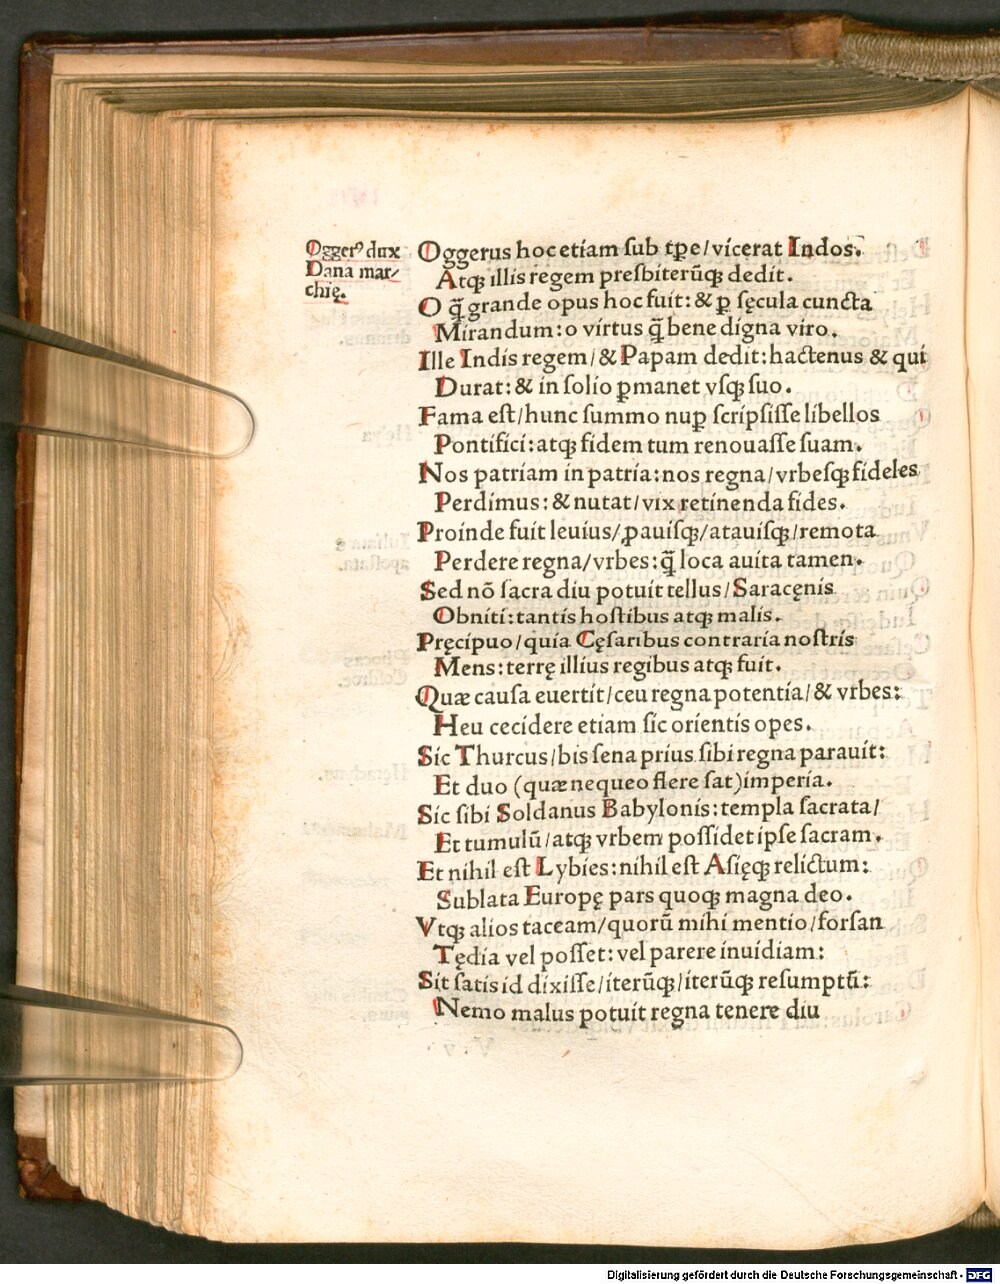 Oggerꝰ dux
Dana mar/
chię.
Oggerus hoc etiam ſub tꝑe/vicerat Indos.
Atqꝫ illis regem preſbiterūqꝫ dedit.
O q̃ grande opus hoc fuit: & ꝑ ſęcula cuncta
Mirandum: o virtus q̃ bene digna viro.
Ille Indis regem/& Papam dedit: hactenus & qui
Durat: & in ſolio ꝑmanet vſqꝫ ſuo.
Fama eſt/hunc ſummo nuꝑ ſcripſiſſe libellos
Pontifici: atqꝫ fidem tum renouaſſe ſuam.
Nos patriam in patria: nos regna/vrbeſqꝫ fideles
Perdimus: & nutat/vix retinenda fides.
Proinde fuit leuius/ꝓauiſqꝫ/atauiſqꝫ/remota
Perdere regna/vrbes: q̃ loca auita tamen.
Sed nō ſacra diu potuit tellus/Saracęnis
Obniti: tantis hoſtibus atqꝫ malis.
Pręcipuo/quia Cęſaribus contraria noſtris
Mens: terrę illius regibus atqꝫ fuit.
Quæ cauſa euertit/ceu regna potentia/& vrbes:
Heu cecidere etiam ſic orientis opes.
Sic Thurcus/bis ſena prius ſibi regna parauit:
Et duo (quæ nequeo flere ſat) imperia.
Sic ſibi Soldanus Babylonis: templa ſacrata/
Et tumulū/atqꝫ vrbem poſſidet ipſe ſacram.
Et nihil eſt Lybies: nihil eſt Aſięqꝫ relictum:
Sublata Europę pars quoqꝫ magna deo.
Vtqꝫ alios taceam/quorū mihi mentio/forſan
Tędia vel poſſet: vel parere inuidiam:
Sit ſatis id dixiſſe/iterūqꝫ/iterūqꝫ reſumptū:
Nemo malus potuit regna tenere diu
Digitalisierung gefördert durch die Deutsche Forschungsgemeinschaft - DFG